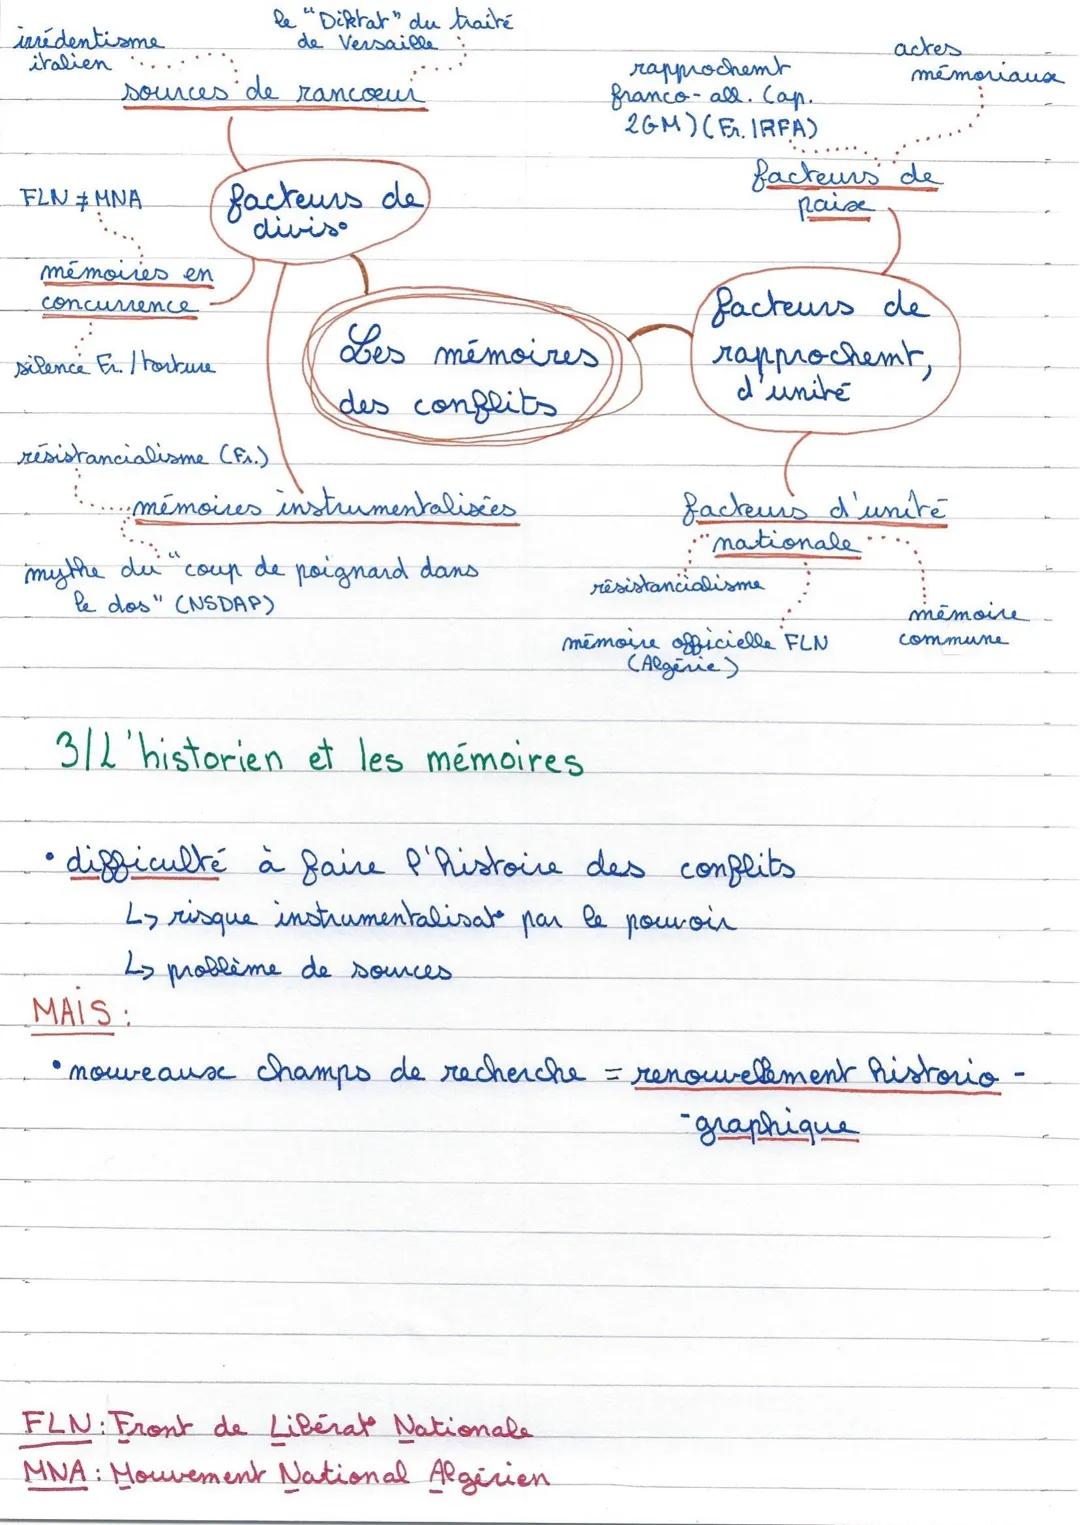 irrédentisme
italien
le "Diktat" du traité
de Versaille
sources de rancœur
rapprochemt
franco-all. (ap.
2GM) (Fr. / RFA)
actes
mémoriaux
facteurs de
paix
FLN ≠ MNA
facteurs de
divis°
mémoires en
concurrence
silence Fr. / torture
Les mémoires
des conflits
facteurs de
rapprochemt,
d'unité
résistancialisme (Fr.)
mémoires instrumentalisées
mythe du "coup de poignard dans
le dos" (NSDAP)
facteurs d'unité
nationale
résistancialisme
mémoire officielle FLN
(Algérie)
mémoire
commune
3/L'historien et les mémoires
• difficulté à faire l'histoire des conflits
↳ risque instrumentalisat° par le pouvoir
↳ problème de sources
MAIS :
• nouveaux champs de recherche = renouvellement historio-
-graphique
FLN : Front de Libérat° Nationale
MNA : Mouvement National Algérien